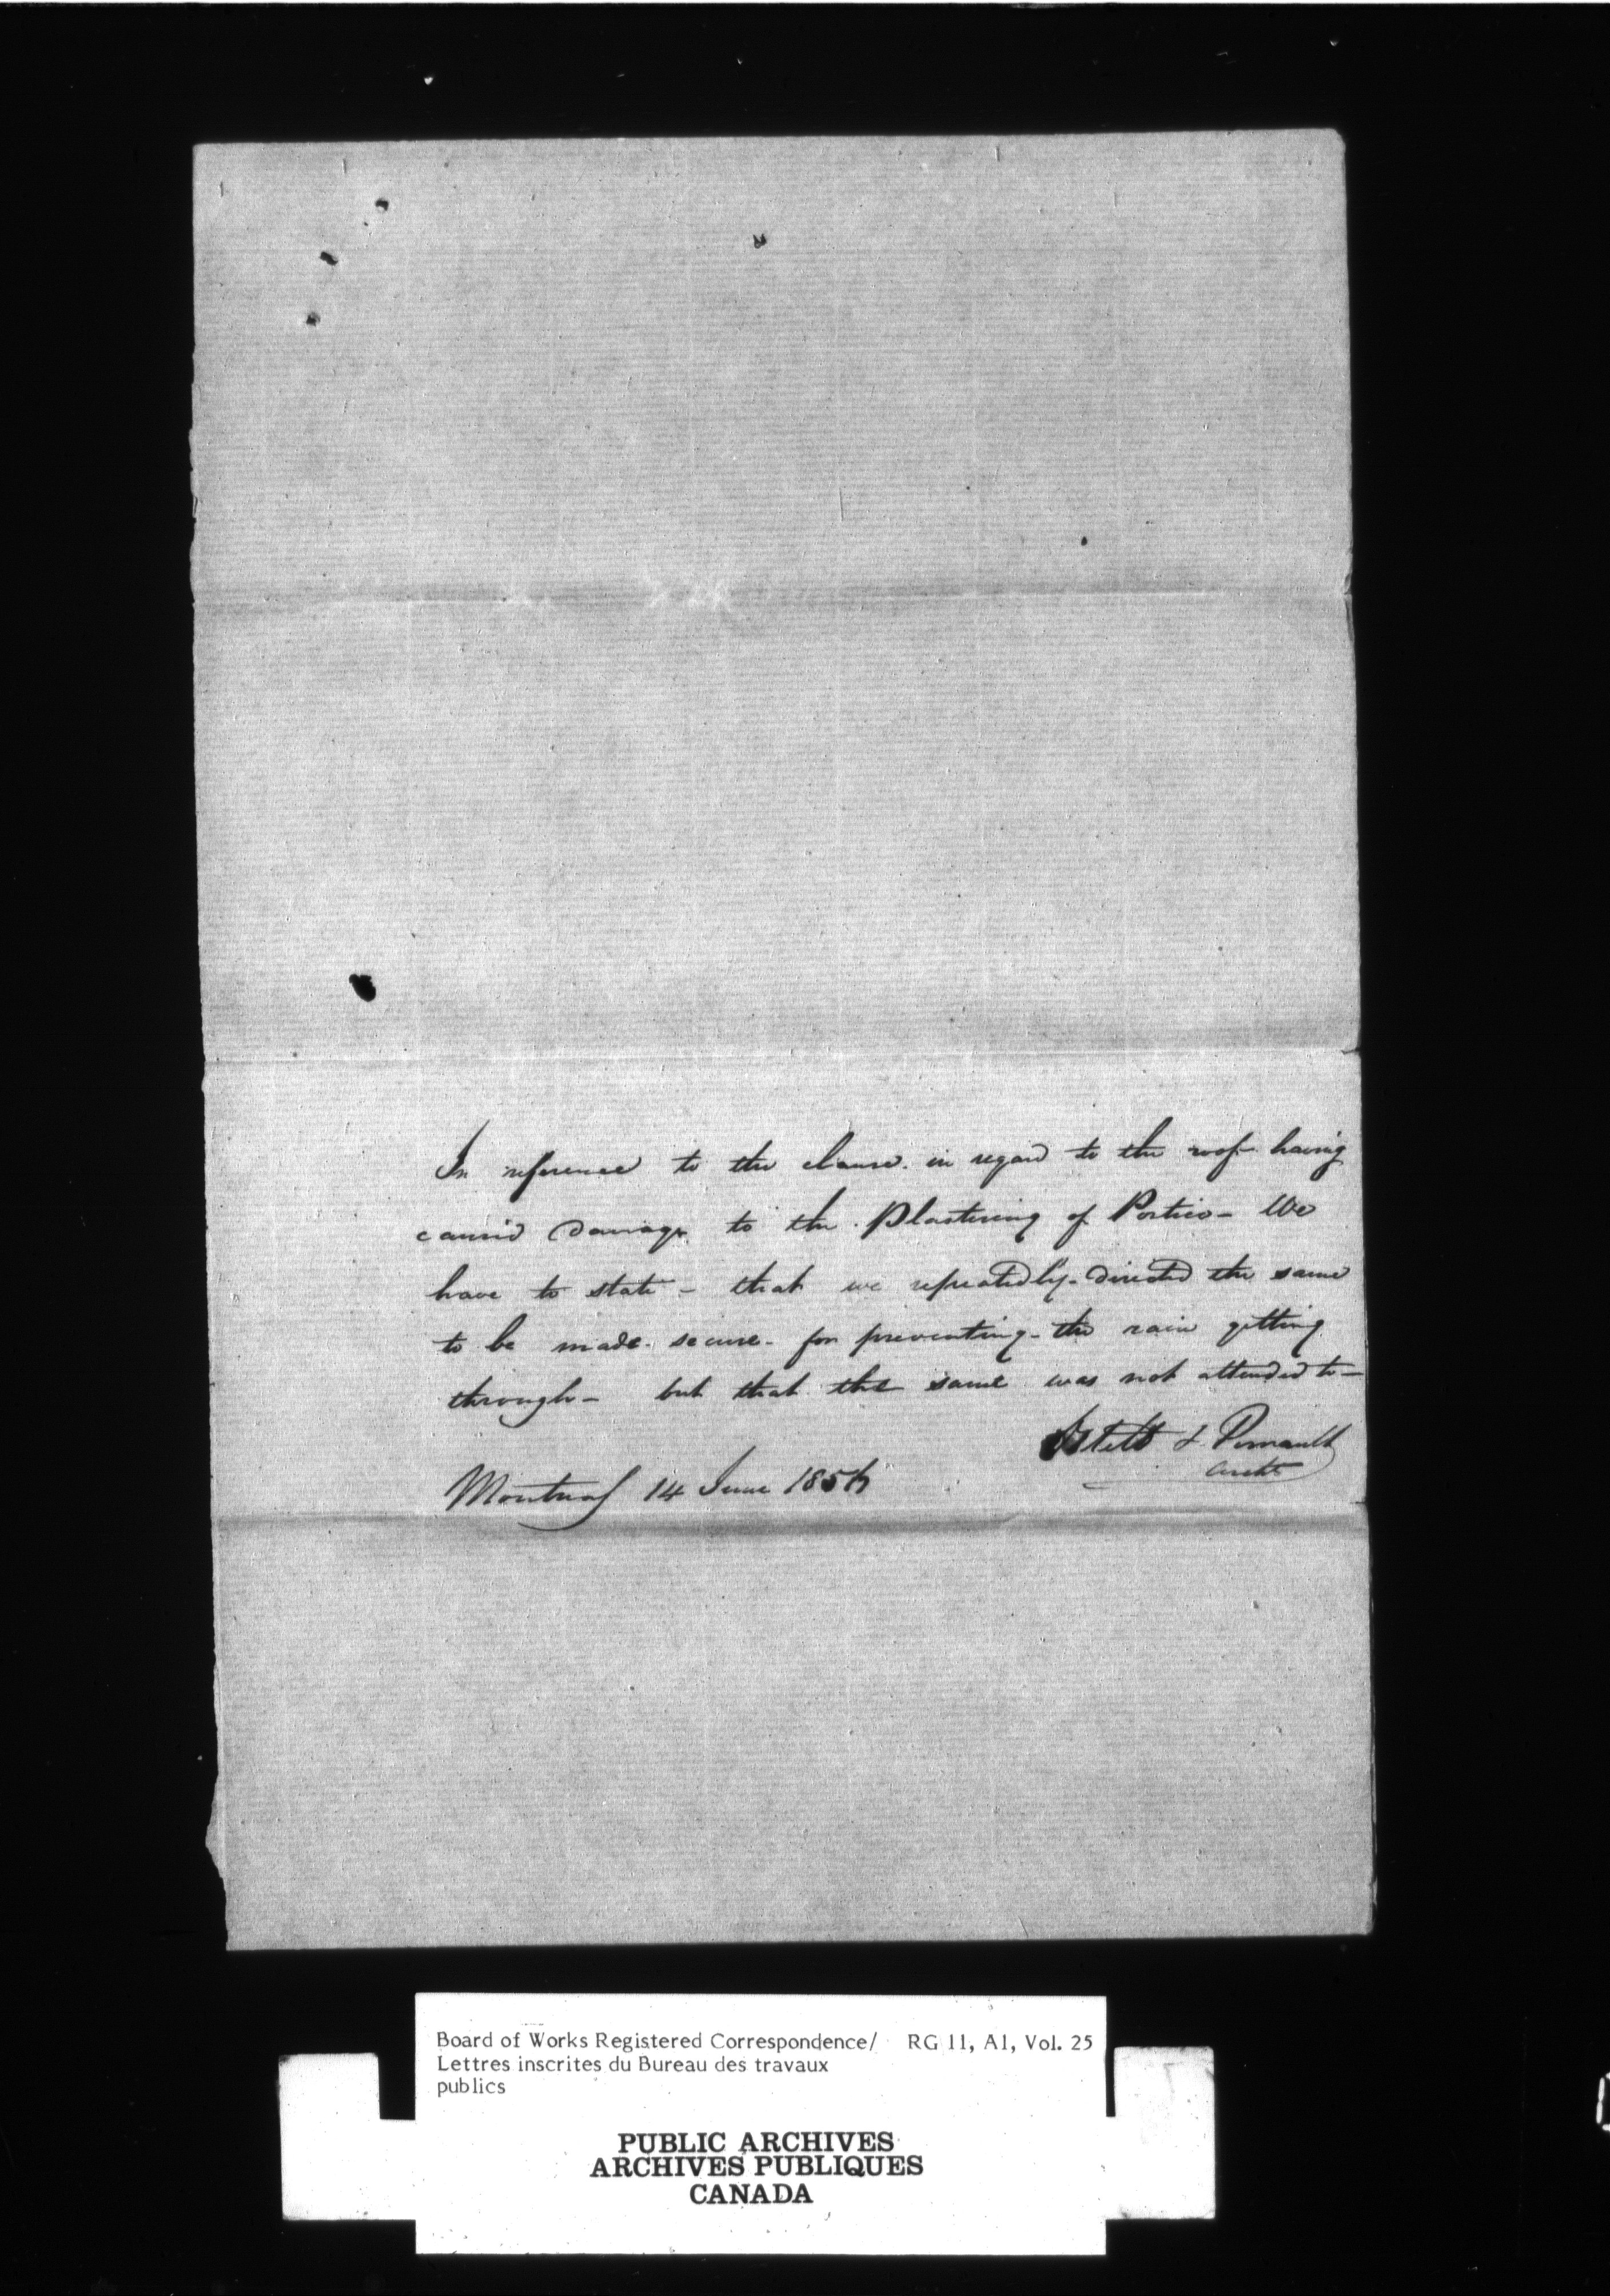 In reference to the clause in regard to the roof having
caus'd damage to the Plastering of Portico - We
have to state - that we repeatedly - directed the same
to be made secure - for preventing - the rain getting
through - but that the same was not attended to -
Ostell & Perrault
Archts
Montreal 14 June 185
Board of Works Registered Correspondence/ RG 11, A1, Vol. 25
Lettres inscrites du Bureau des travaux
publics
PUBLIC ARCHIVES
ARCHIVES PUBLIQUES
CANADA